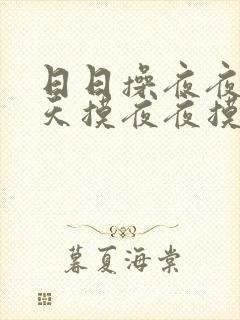 日日操夜夜
天摸夜夜摸
暮夏海棠